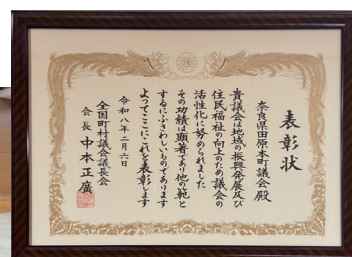 表彰状
奈良県田原本町議会殿
貴議会は地域の振興発展及び
住民福祉の向上のため議会の
活性化に努められました
その功績は顕著であり他の範と
するにふさわしいものであります
よってここにこれを表彰します
令和八年二月六日
全国町村議会議長会
会長 中本正廣